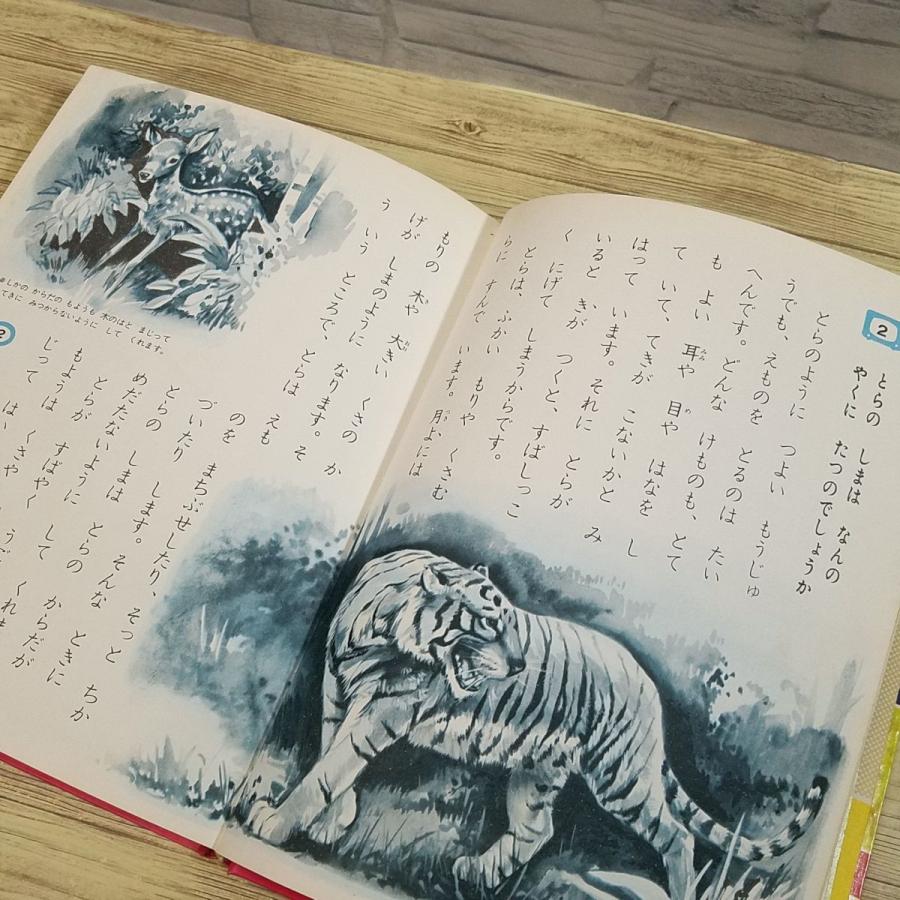 2
とらの しまは なんの
やくに たつのでしょうか
とらのように つよい もうじゅ
うでも、えものを とるのは たい
へんです。 どんな けものも、とて
も よい 耳や 目や はなを し
て いて、てきが こないかと み
はって います。それに とらが
いると きが つくと、すばしっこ
く にげて しまうからです。
とらは、ふかい もりや くさむ
らに すんで います。月よには
もりの 木や 大きい くさの か
げが しまのように なります。そ
う いう ところで、とらは えも
のを まちぶせしたり、そっと ちか
づいたり します。そんな ときに
とらの しまは とらの からだが
めだたないように して くれ
とらが すばやく うご
もようは くさや
じって は
しかの からだの もようも 木のはと まじって
てきに みつからないように して くれます。